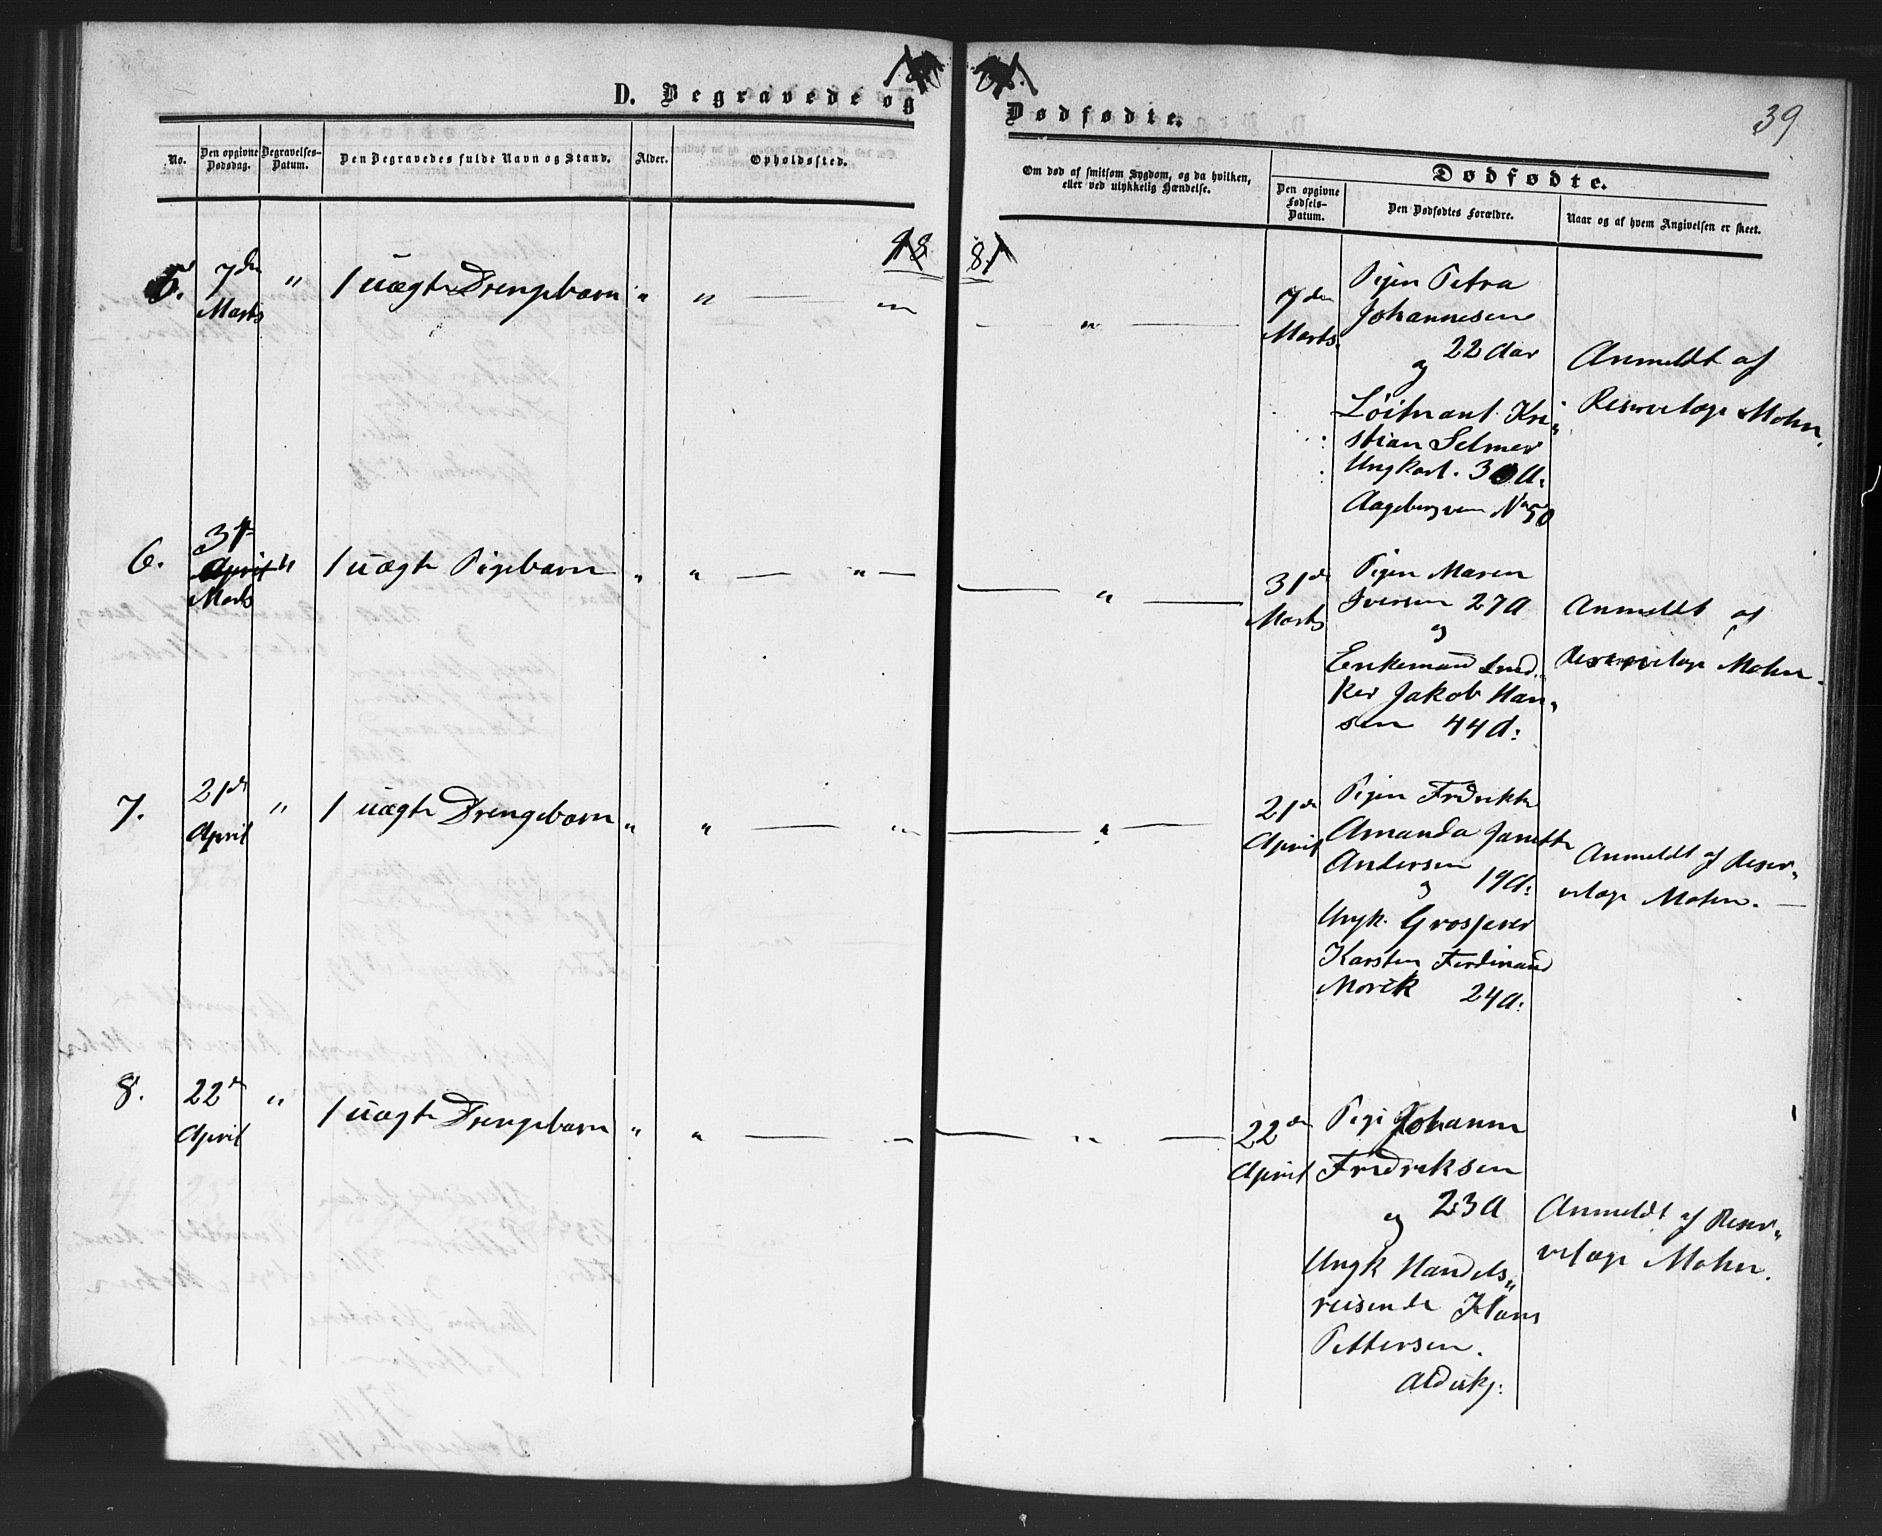 D. Begravede og
Dødfødte.
39
No.
Den opgivne Dødsdag.
Begravelses-Datum.
Den Begravedes fulde Navn og Stand.
Alder.
Opholdssted.
Om død af smitsom Sygdom, og da hvilken,
eller ved ulykkelig Hændelse.
Dødfødte.
Den opgivne Fødsels-Datum.
Den Dødfødtes Forældre.
Naar og af hvem Angivelsen er skeet.
18 81
5.
7de
Marts
"
1 uægte Drengebarn
"
"
"
7de
Marts.
Pigen Petra
Johannesen
22 Aar
og
Løitnant Kri-
stian Selmer
Ungkarl. 30 A.
Aagebergveien No 50
Anmeldt af
Reservelæge Mohn.
6.
31te
April
Marts
"
1 uægte Pigebarn
"
"
"
31de
Marts
Pigen Maren
Iversen 27 A
og
Enkemand Sned-
ker Jakob Han-
sen 44 A:
Anmeldt af
Reservelæge Mohn.
7.
21de
April
"
1 uægte Drengebarn
"
"
"
21de
April
Pigen Fredrikke
Amanda Janette
Andersen
og 19 A:
Ungk. Grosserer
Karsten Ferdinand
Morek 24 A:
Anmeldt af Reser-
velæge Mohn.
8.
22de
April
"
1 uægte Drengebarn
"
"
"
22de
April
Pige Johanne
Fredriksen
23 A
og
Ungk Handels-
reisende Hans
Pettersen.
Anmeldt af Reser-
velæge Mohn.